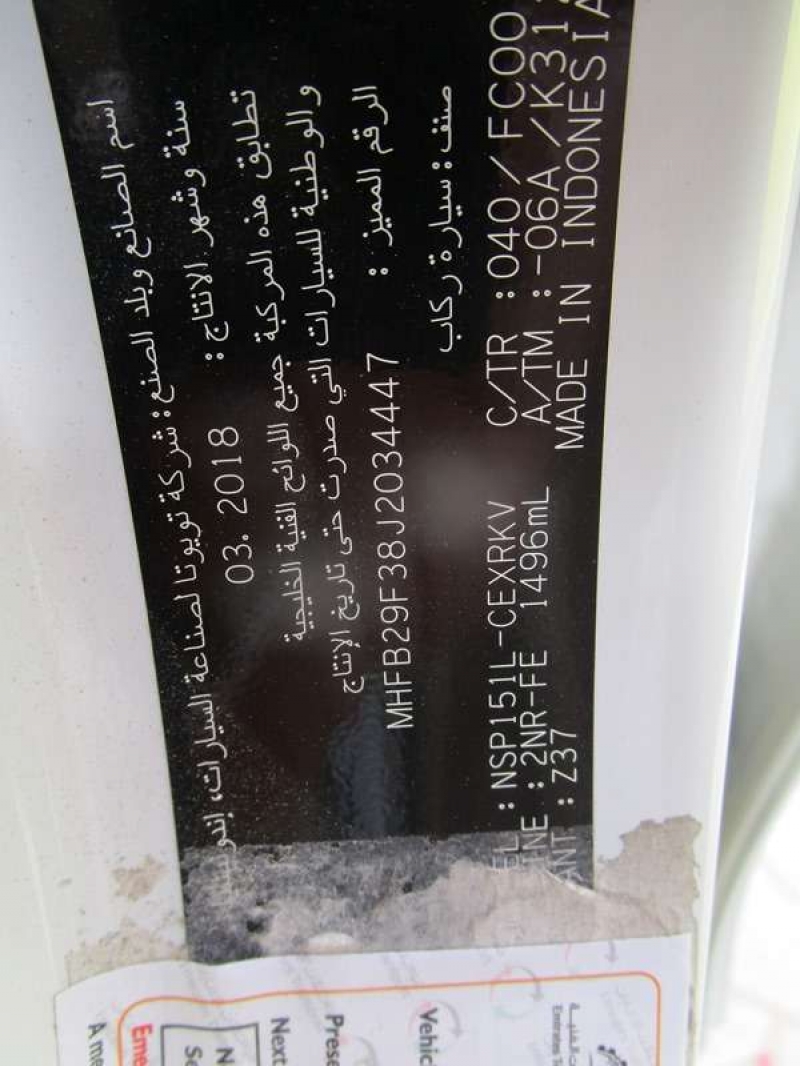 اسم الصانع وبلد الصنع: شركة تويوتا لصناعة السيارات، إندونيسيا
سنة وشهر الانتاج: 03. 2018
تطابق هذه المركبة جميع اللوائح الفنية الخليجية
والوطنية للسيارات التي صدرت حتى تاريخ الإنتاج
الرقم المميز : MHFB29F38J2034447
صنف: سيارة ركاب
EL : NSP151L-CEXRKV C/TR : 040 / FC00
NE : 2NR-FE 1496mL A/TM : -06A / K31
ANT : Z37 MADE IN INDONESIA
Vehic
Prese
Next
Eme
A me